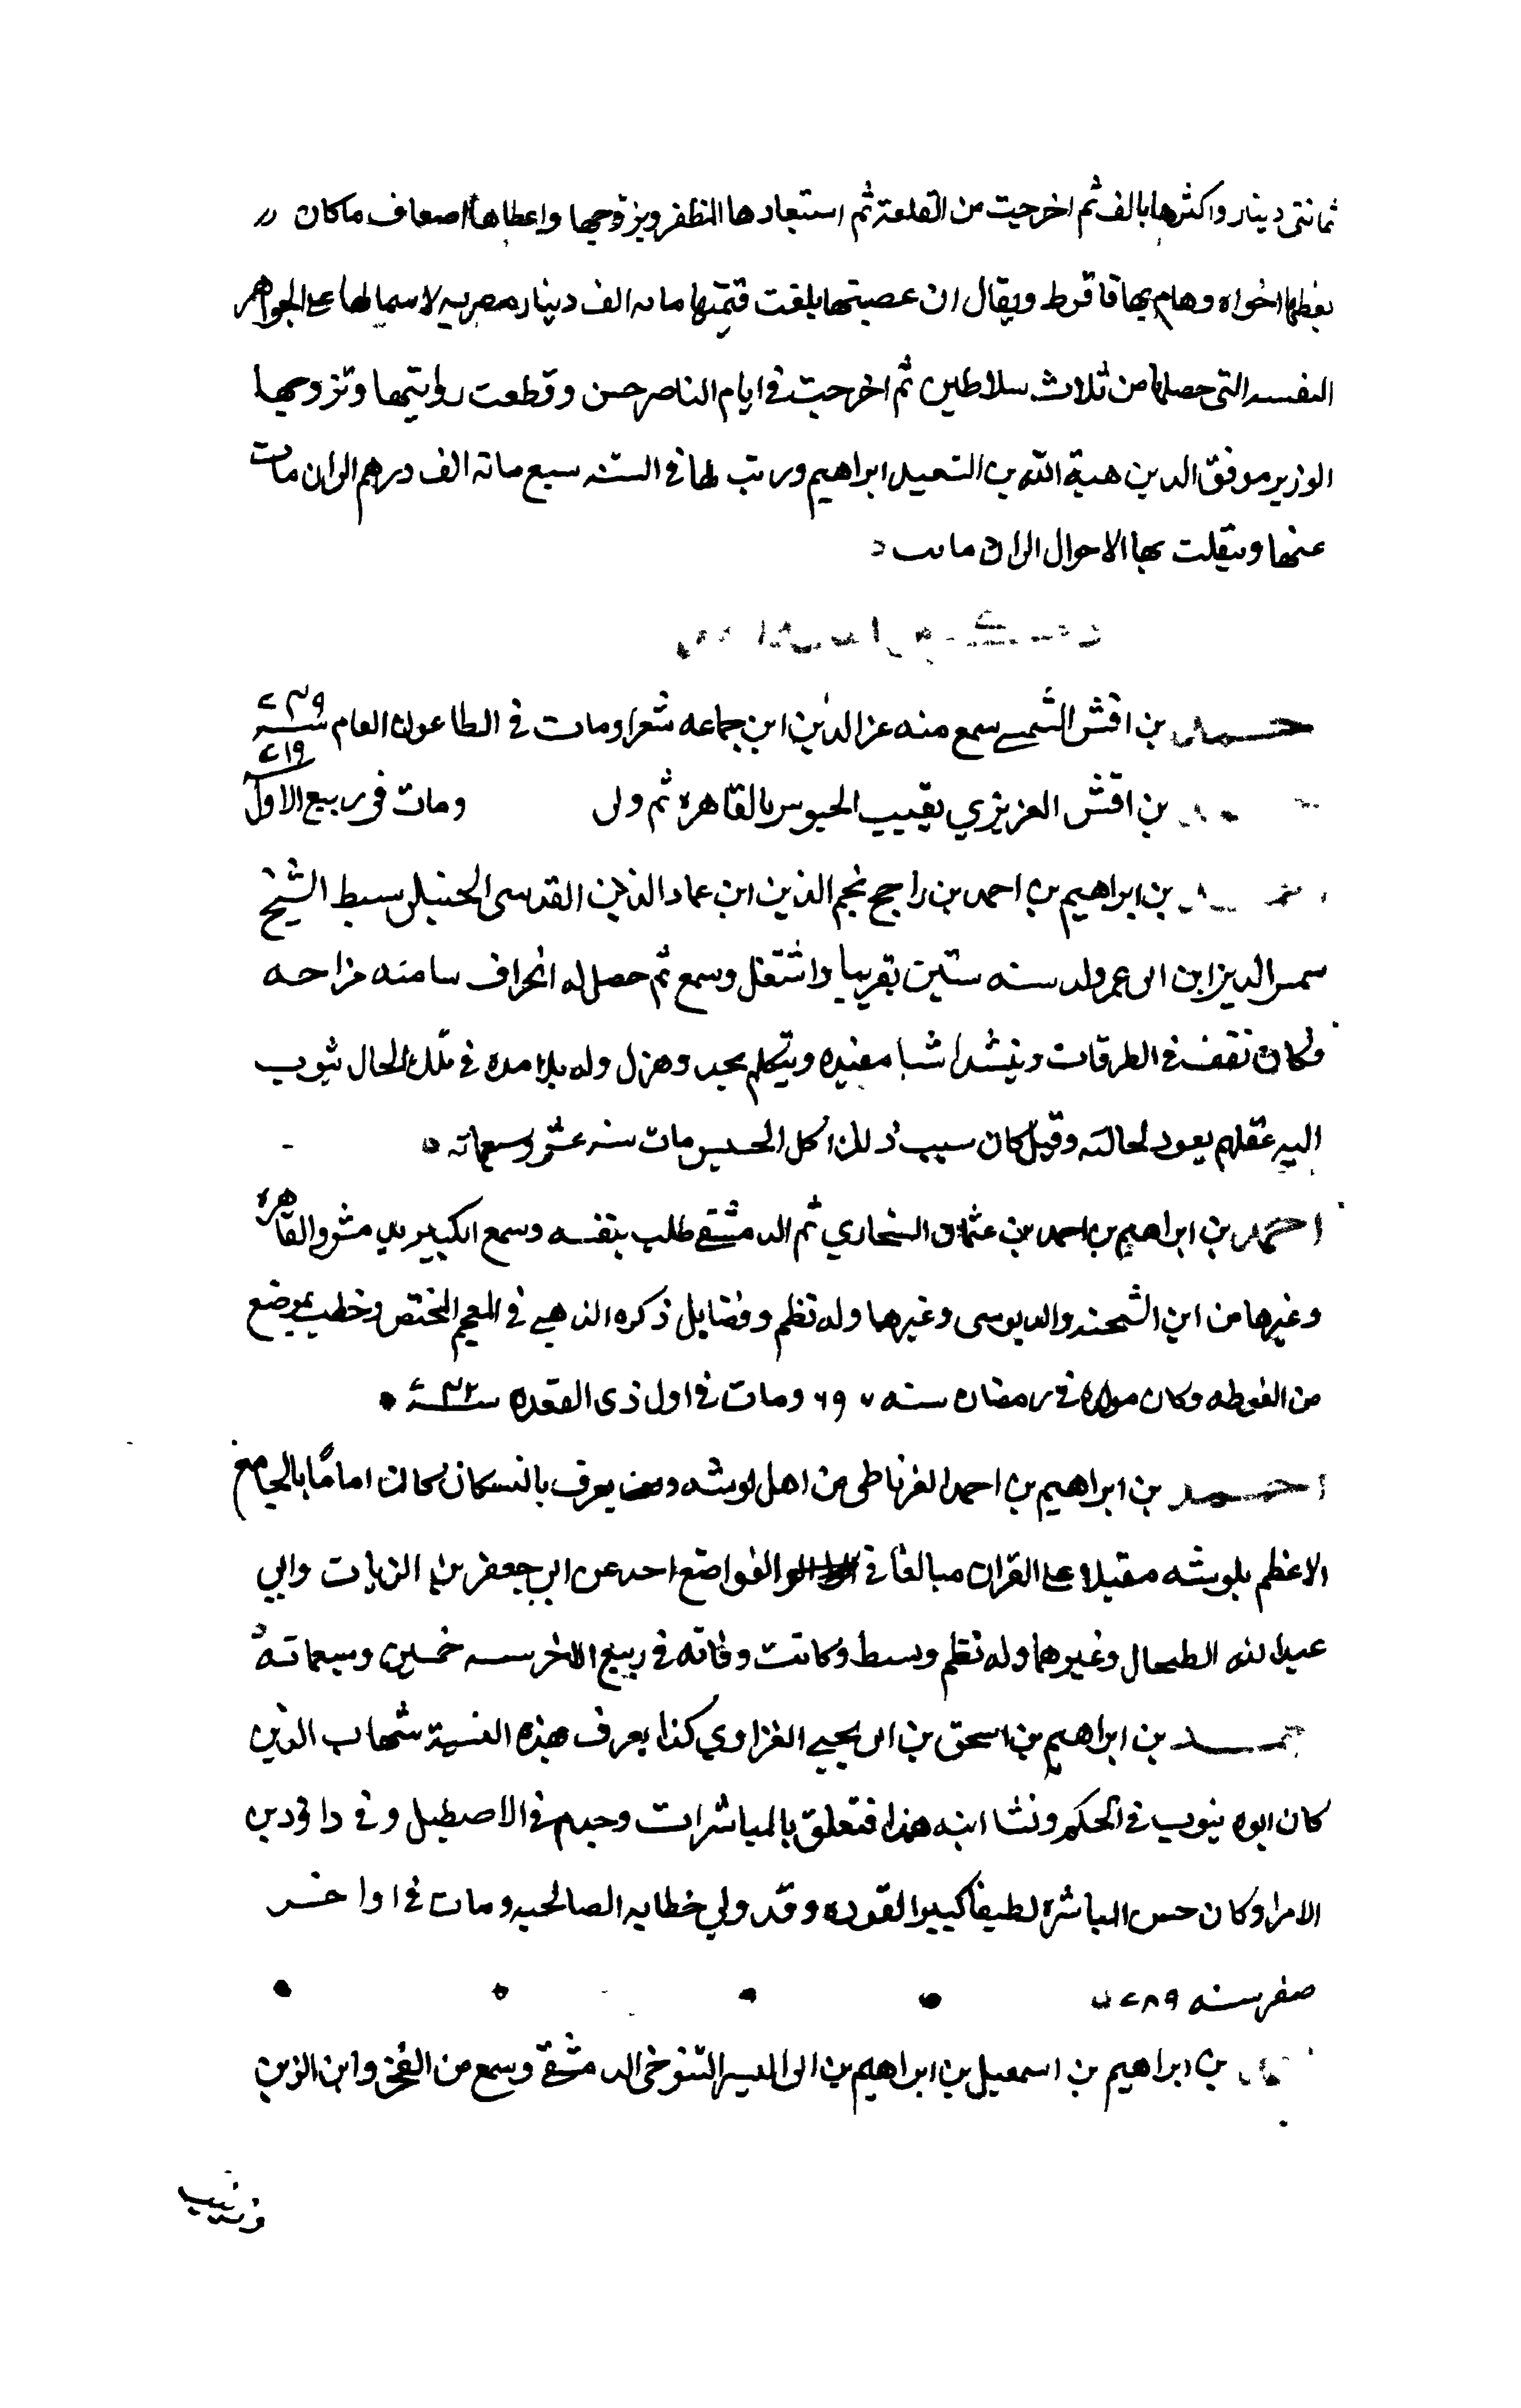 ثمانتى دينار واكثرها بالف ثم اخرجت من القلعة ثم استعادها المظفر ويزوجها واعطاها اصعاف ما كان
اخواه وهام بها قا قرط ويقال ان عصبتها بلغت قيمتها مايه الف دينار مصريه لاسمالها على الجواهر
النفسه التى حصلها من ثلاث سلاطين ثم اخرجت فى ايام الناصر حسن وقطعت رواتبها وتزوجها
الوزير موفق الدين هبة الله بن السعيد ابراهيم ورتب لها فى السنه سبع مائة الف درهم الى ان مات
عنها وتنقلت بها الاحوال الى ان مات
احمد بن اقش الشمسى سمع منه عز الدين ابن جماعه شعرا ومات فى الطاعون العام سنة ٧٤٩
بن اقش العزيزي نقيب الجيوس بالقاهره ثم ولى ومات فى ربيع الاول ٧١٩
بن ابراهيم بن احمد بن راجح نجم الدين ابن عماد الدين القدسى الحنبلى سبط الشيخ
سمس الدين ابن ابى عمر ولد سنه ستين تقريبا واشتغل وسمع ثم حصل له انحراف سامنه مزاحه
وكان تقف فى الطرقات وينشد اشيا مفيده ويتكلم بجد وهزل وله تلامده فى تلك الحال يثوب
اليه عقله ثم يعود لحالته وقيل كان سبب ذلك اكل الحسيس مات سنه عشر وسبعماته
احمد بن ابراهيم بن احمد بن عثمان السنجاري ثم الدمشقى طلب بنفسه وسمع الكبير بدمشق والقاهره
وغيرها من ابن الشحنه والدبوسى وغيرهما وله نظم وفضايل ذكره الذهبى فى المعجم المختص وخطب بموضع
من الغوطه وكان مولده فى رمضان سنه ٦٩٧ ومات فى اول ذى القعده سنة
احمد بن ابراهيم بن احمد الغرناطى من اهل لوشه يعرف بالنسكان كان اماما بالجامع
الاعظم بلوشه مقبلا على القران مبالغا فى التواضع اخد عن ابى جعفر بن الزيات وابي
عبد الله الطنجالى وغيرهما وله نظم وسط وكانت وفاته فى ربيع الاخر سنه خمسين وسبعمائة
احمد بن ابراهيم بن اسحق بن ابى يحيى الغزاوي كذا يعرف بهذه النسبة شهاب الدين
كان ابوه ينوب فى الحكم ونشا ابنه هذا فتعلق بالمباشرات وخدم فى الاصطبل وفى دواوين
الامرا وكان حسن المباشرة لطيفا كبير القوده وقد ولي خطابه الصالحيه ومات فى اواخر
صفر سنه ٧٨٩
بن ابراهيم بن اسمعيل بن ابراهيم بن ابى اليسر التنوخى الدمشقى وسمع من الفخر وابن الزين
وزينب